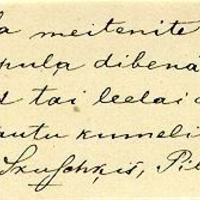 a meitenite
pula dibenā
d tai leelai
autu kumeli
Skuschķis, Pil